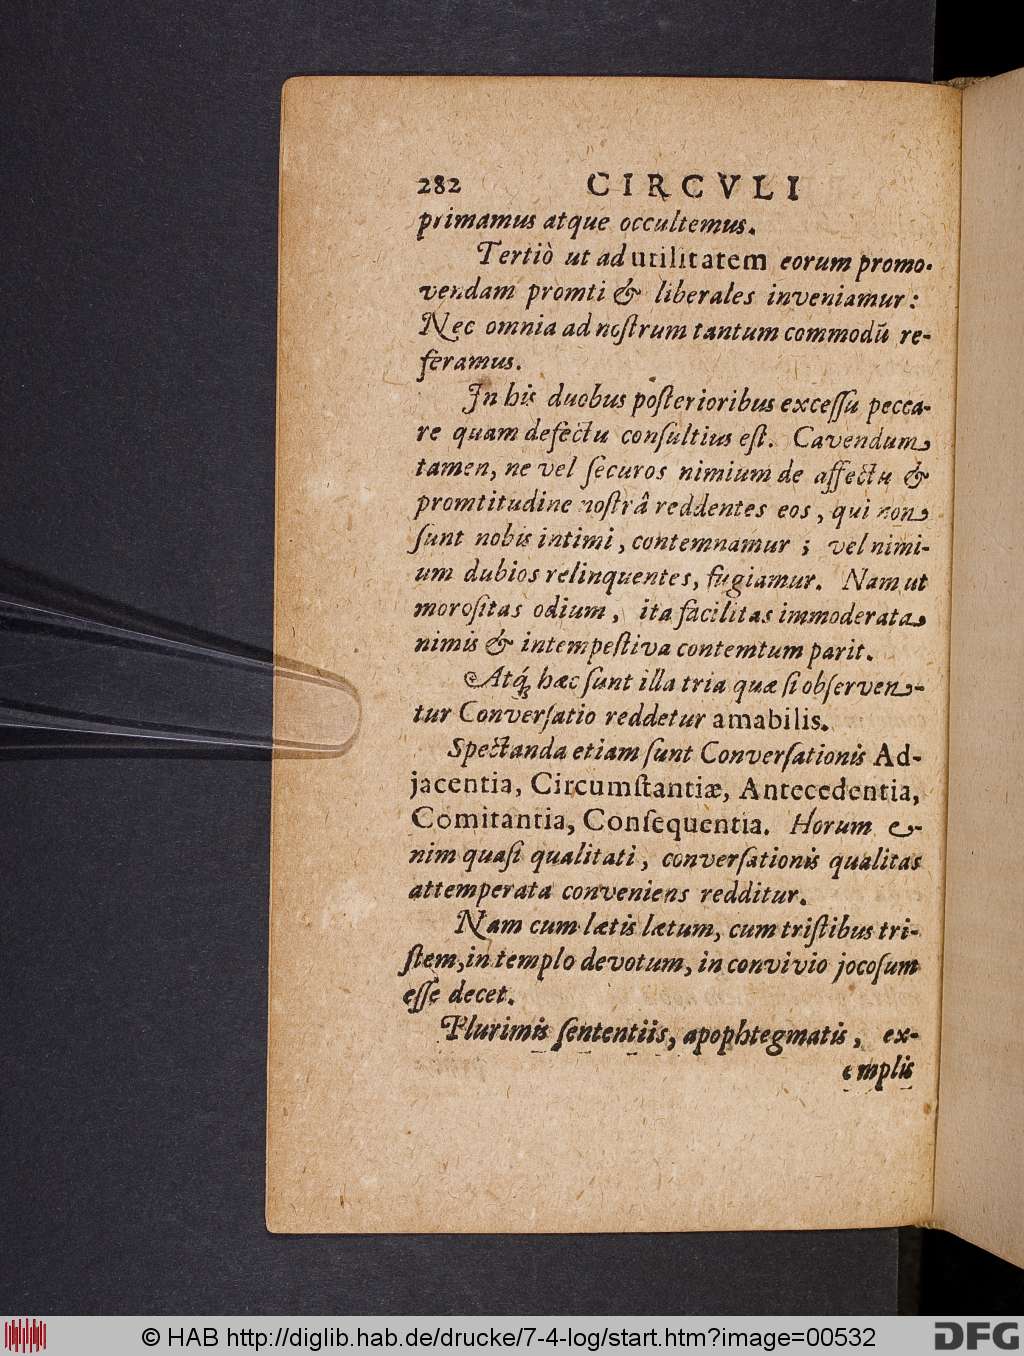 282 CIRCVLI
primamus atque occultemus.
Tertiò ut ad utilitatem eorum promo-
vendam promti & liberales inveniamur:
Nec omnia ad noſtrum tantum commodū re-
feramus.
In his duobus poſterioribus exceſſu pecca-
re quam defectu conſultius eſt. Cavendum
tamen, ne vel ſecuros nimium de affectu &
promtitudine noſtrâ reddentes eos, qui non
ſunt nobis intimi, contemnamur; vel nimi-
um dubios relinquentes, fugiamur. Nam ut
moroſitas odium, ita facilitas immoderata
nimis & intempeſtiva contemtum parit.
Atq́ hæc ſunt illa tria quæ ſi obſerven-
tur Converſatio reddetur amabilis.
Spectanda etiam ſunt Converſationis Ad-
jacentia, Circumſtantiæ, Antecedentia,
Comitantia, Conſequentia. Horum e-
nim quaſi qualitati, converſationis qualitas
attemperata conveniens redditur.
Nam cum lætis lætum, cum triſtibus tri-
ſtem, in templo devotum, in convivio jocoſum
eſſe decet.
Plurimis ſententiis, apophtegmatis, ex-
emplis
© HAB http://diglib.hab.de/drucke/7-4-log/start.htm?image=00532
DFG